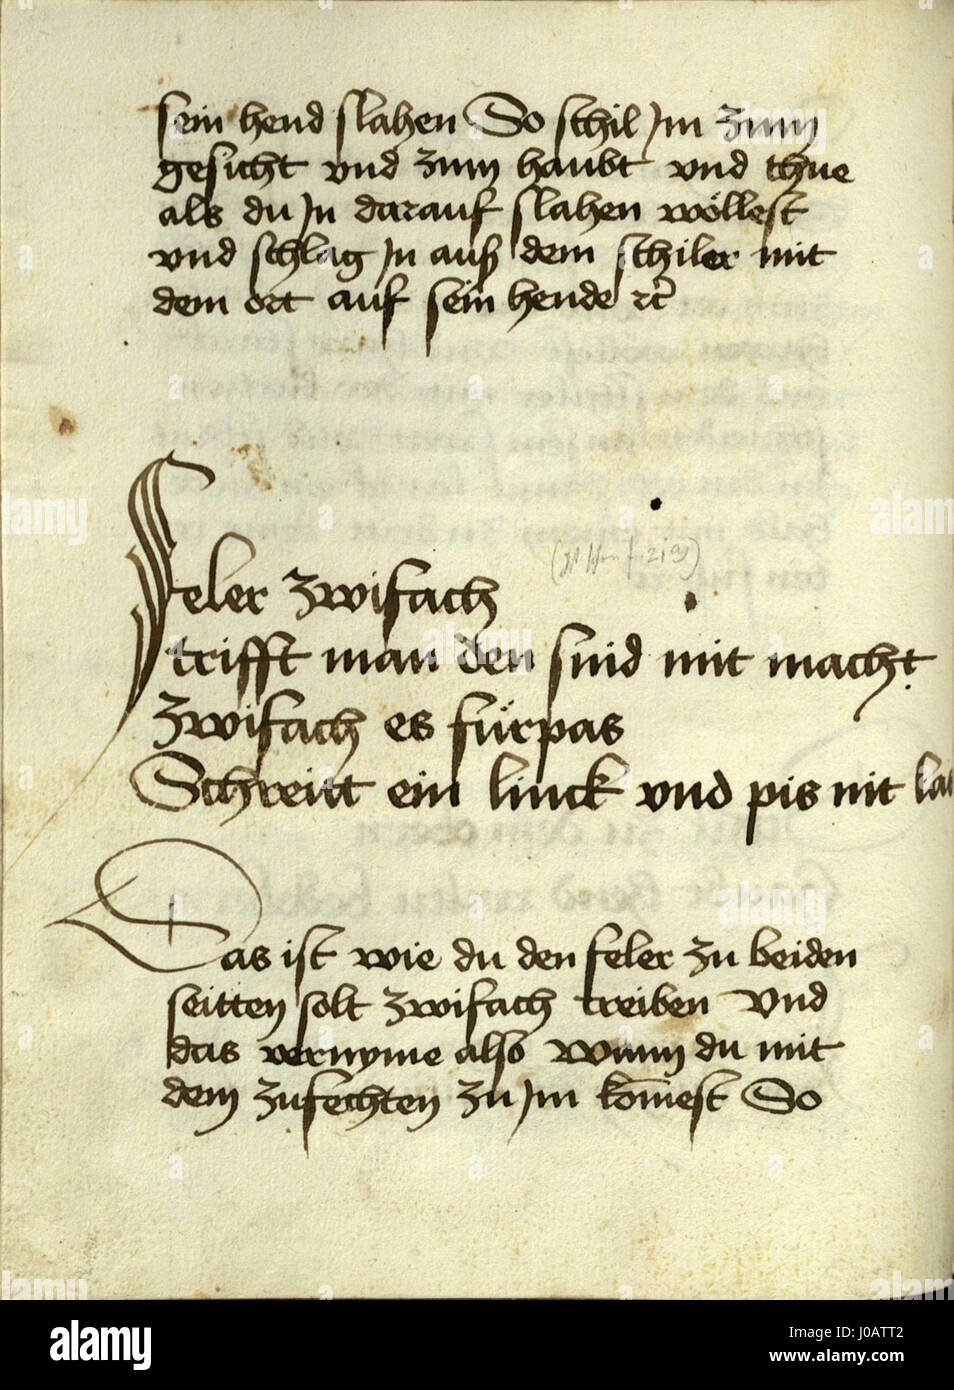 sein hend slahen So schil Jm zum
gesicht vnd zum haubt vnd thue
als du Jn darauf slahen wöllest
vnd schlag Jn auß dem schiler mit
dem ort auf sein hende rc
Feler zwifach
trifft man den snid mit macht
zwifach es fürpas
Schreitt ein linck vnd pis nit
Das ist wie du den feler zu beiden
seitten solt zwifach treiben Vnd
das vernyme also Wann du mit
dem zufechten zu Jm ko̅mest So
alamy
Image ID: J0ATT2
www.alamy.com